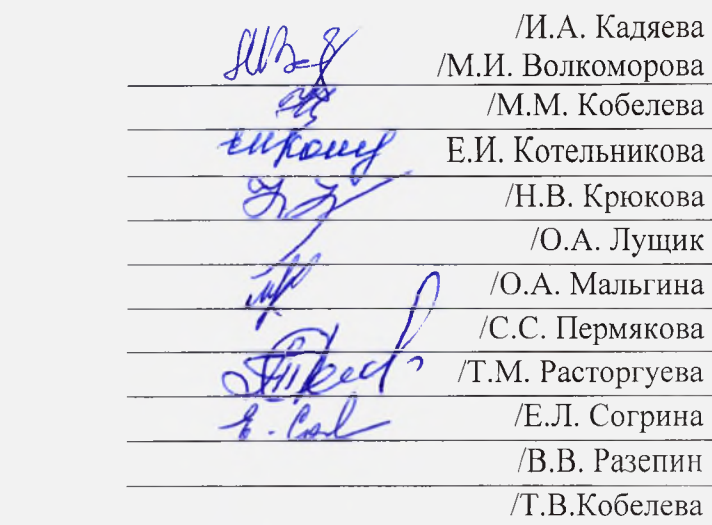 /И.А. Кадяева
/М.И. Волкоморова
/М.М. Кобелева
Е.И. Котельникова
/Н.В. Крюкова
/О.А. Лущик
/О.А. Мальгина
/С.С. Пермякова
/Т.М. Расторгуева
/Е.Л. Согрина
/В.В. Разепин
/Т.В.Кобелева